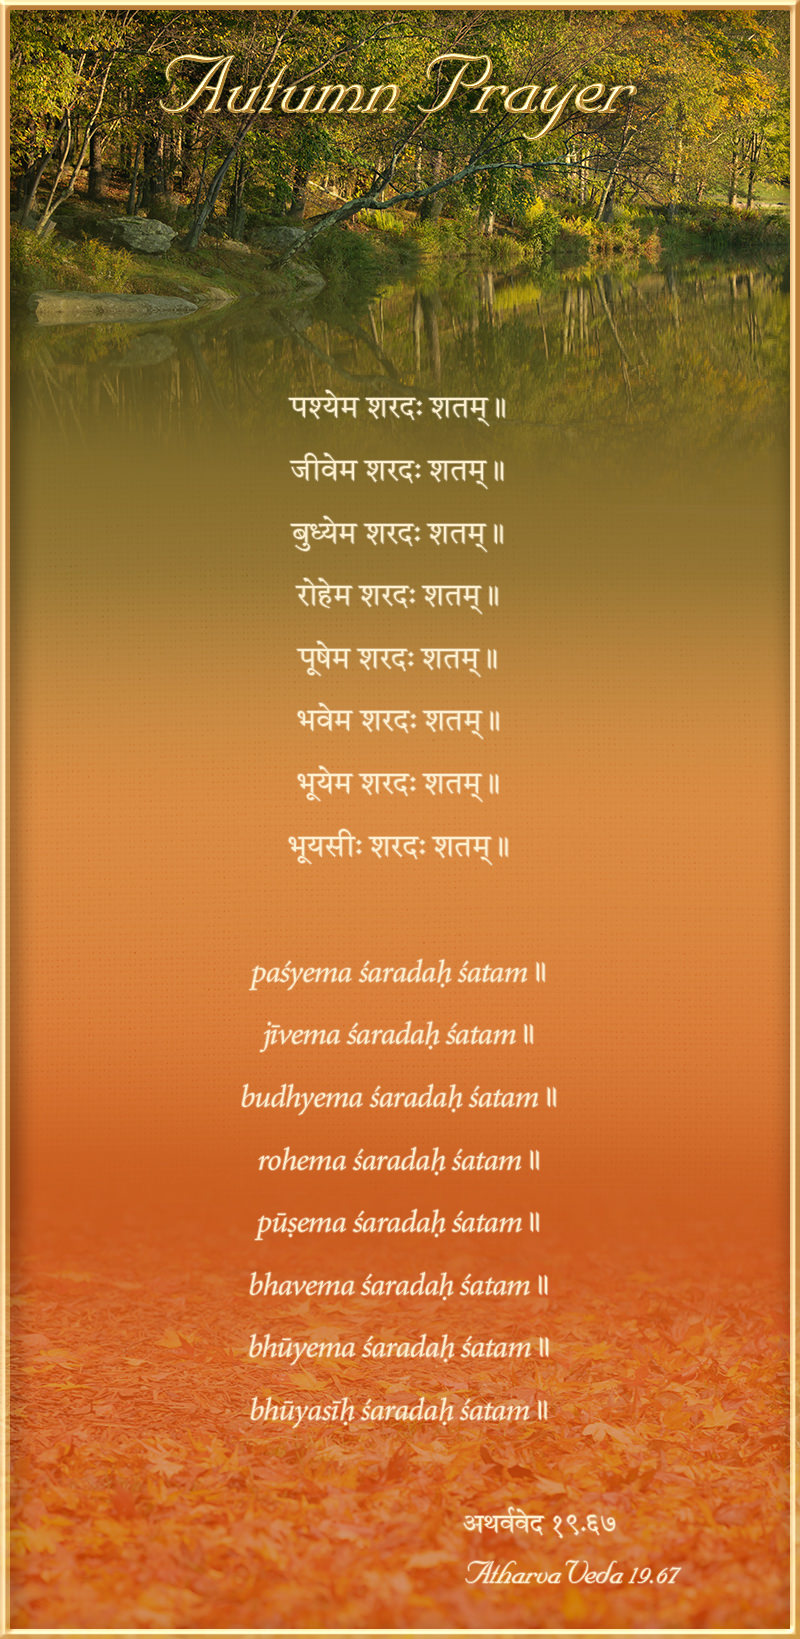 Autumn Prayer
पश्येम शरदः शतम्॥
जीवेम शरदः शतम्॥
बुध्येम शरदः शतम्॥
रोहेम शरदः शतम्॥
पूषेम शरदः शतम्॥
भवेम शरदः शतम्॥
भूयेम शरदः शतम्॥
भूयसीः शरदः शतम्॥
paśyema śaradaḥ śatam॥
jīvema śaradaḥ śatam॥
budhyema śaradaḥ śatam॥
rohema śaradaḥ śatam॥
pūṣema śaradaḥ śatam॥
bhavema śaradaḥ śatam॥
bhūyema śaradaḥ śatam॥
bhūyasīḥ śaradaḥ śatam॥
अथर्ववेद १९.६७
Atharva Veda 19.67